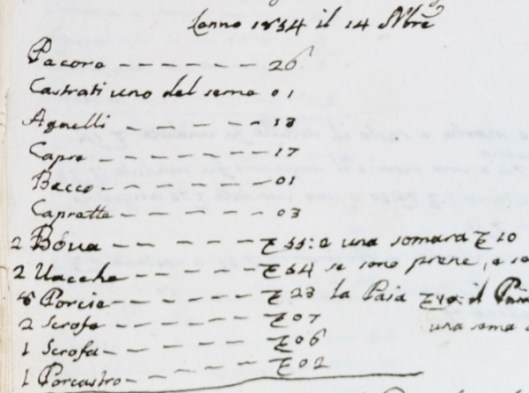 Lanno 1854 il 14 Nbre
Pacora - - - - - - 26
Castrati uno del seme 01
Agnelli - - - - - - 18
Capre - - - - - - 17
Becco - - - - - - 01
Caprette - - - - - 03
2 Bóua - - - - - - - £ 55: e una somara £ 10
2 Uacche - - - - - £ 54 se sono prene, e se
8 Porcie - - - - - - £ 23 la Paia il
2 Scrofe - - - - - - £ 07 una
1 Scrofa - - - - - - £ 06
1 Porcastro - - - - - £ 02